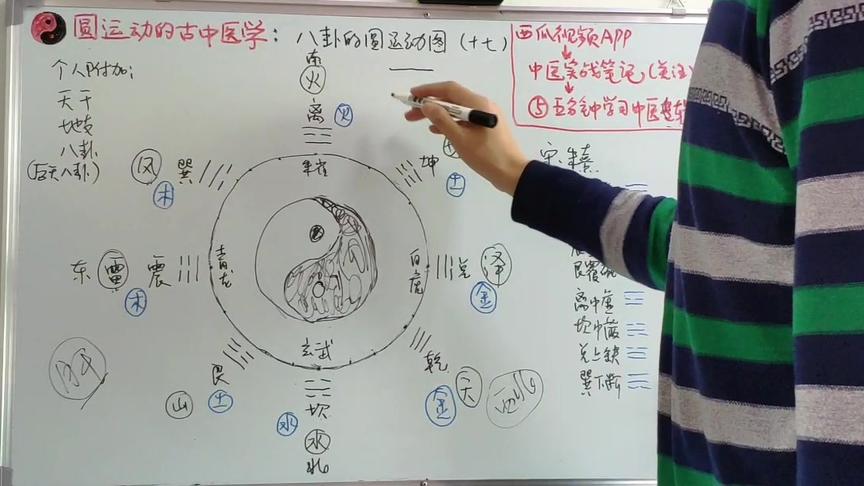 圆运动的古中医学：八卦的圆运动图（十七）
西瓜视频APP
中医实战笔记，（关注）
⑤五分钟学习中医基础
个人附加：
天干
地支
八卦
（后天八卦）
南
火
离 火
朱雀
风 巽
木
坤
土
东 雷 震
木
青龙
白虎
兑 泽
金
玄武
艮
山 土
坎
水
水
北
乾
天
金
西北
宋·朱熹
离中虚
坎中满
兑上缺
巽下断